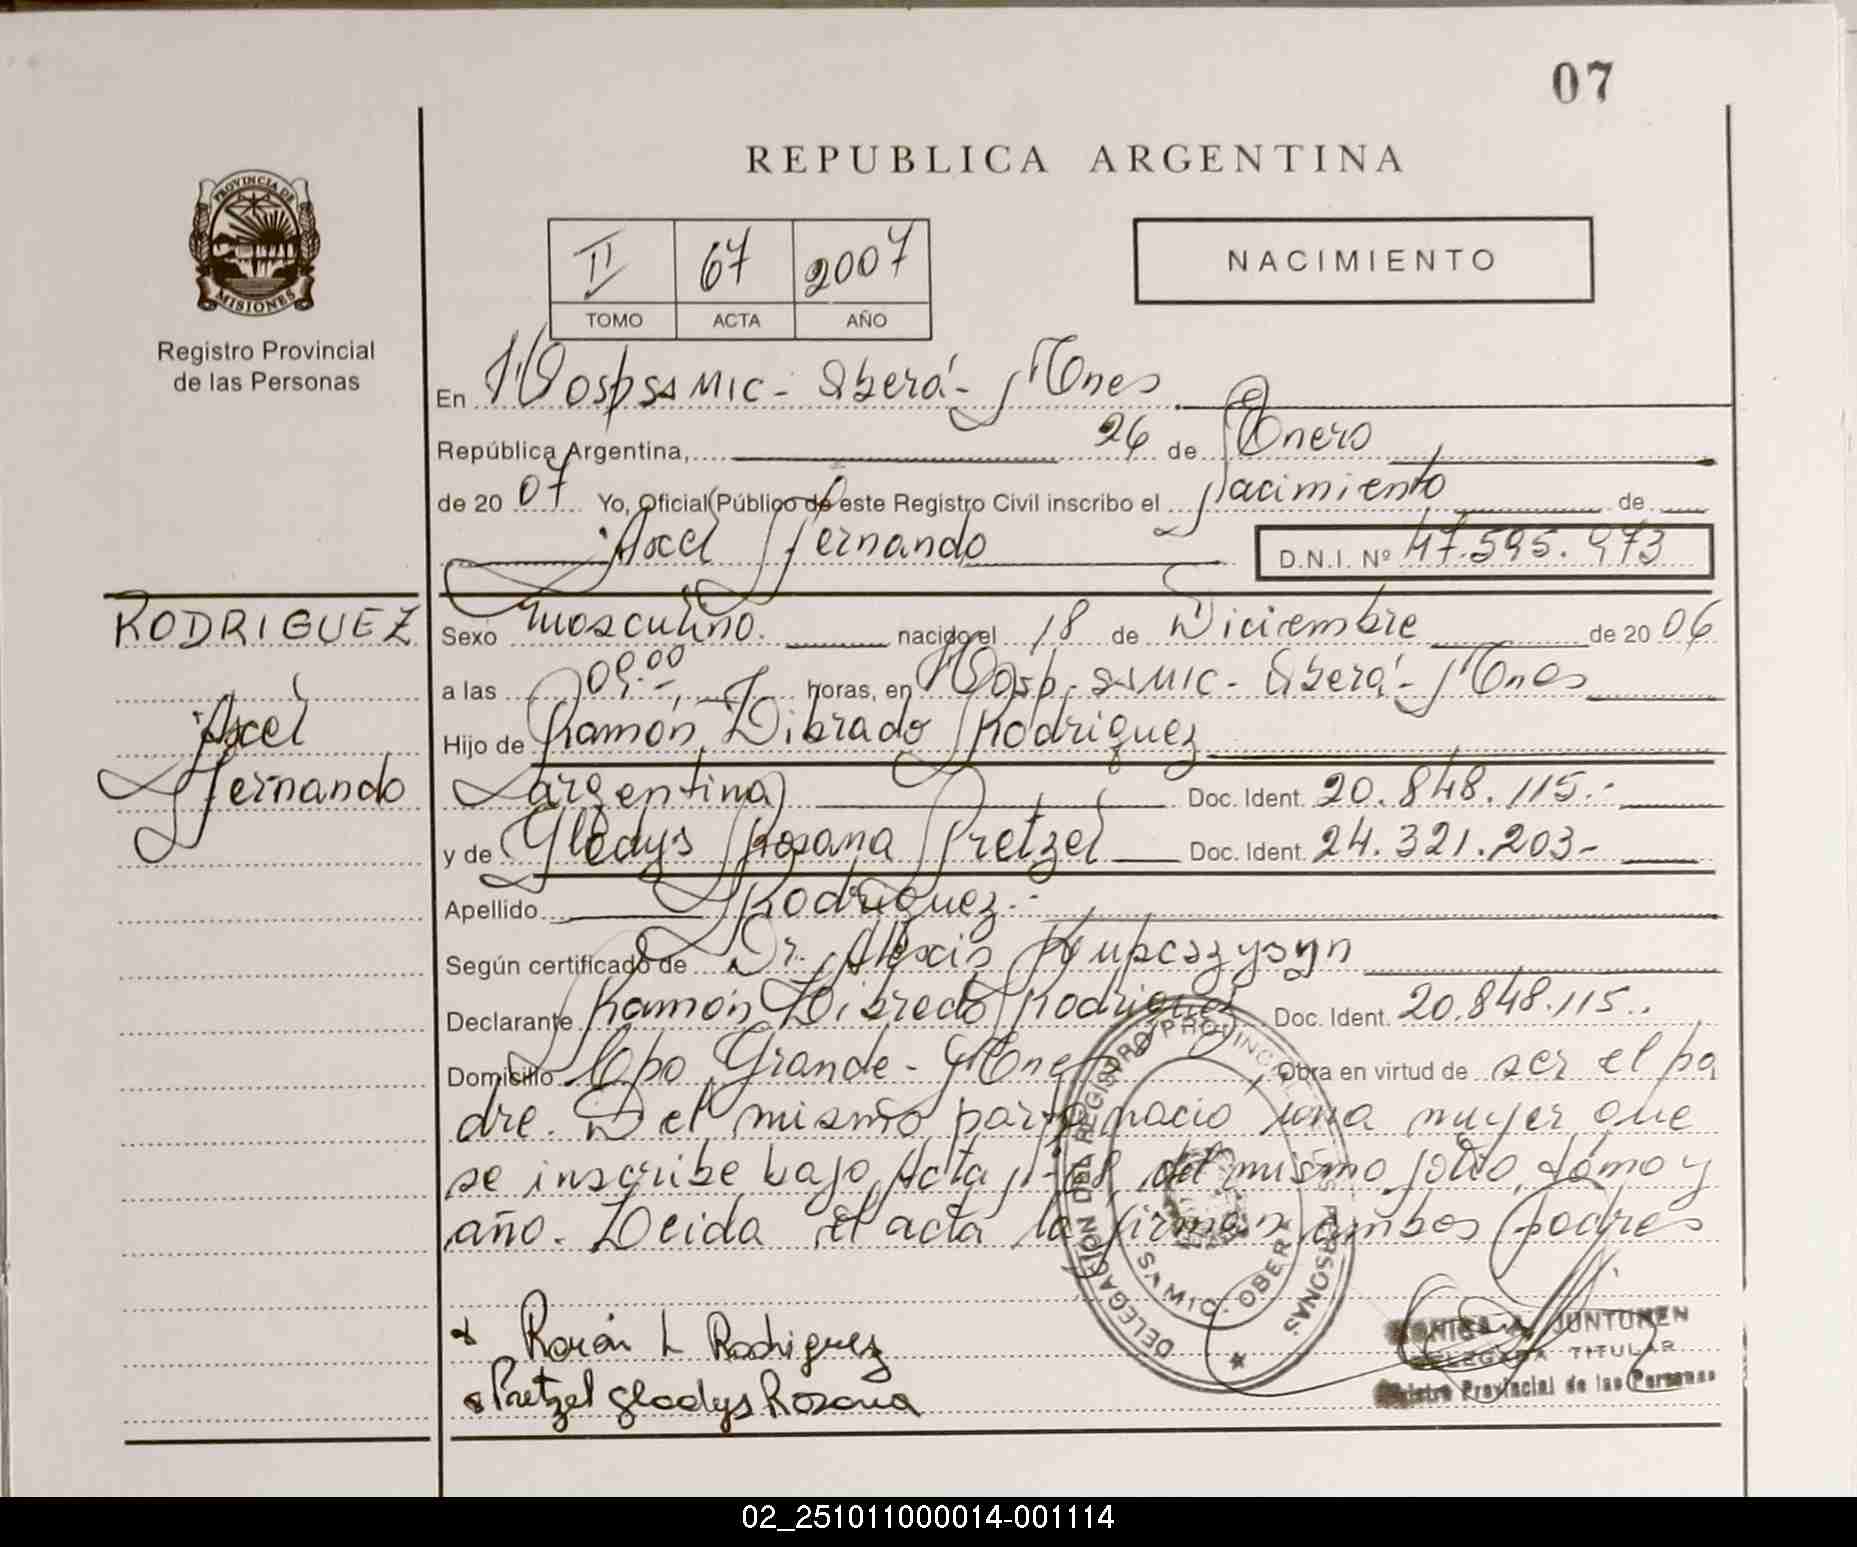 07
REPUBLICA ARGENTINA
PROVINCIA DE
MISIONES
Registro Provincial
de las Personas
II 67 2007
TOMO ACTA AÑO
NACIMIENTO
En Hosp SAMIC - Oberá - Mnes
República Argentina, 26 de Enero
de 20 07 Yo, Oficial Público de este Registro Civil inscribo el Nacimiento de
Axel Fernando D.N.I. Nº 47.595.973
RODRIGUEZ
Axel
Fernando
Sexo masculino. nacido el 18 de Diciembre de 20 06
a las 09:00 horas, en Hosp. SAMIC - Oberá - Mnes
Hijo de Ramón Librado Rodriguez
Argentina Doc. Ident. 20.848.115.-
y de Gladys Rosana Pretzel Doc. Ident. 24.321.203-
Apellido Rodriguez.-
Según certificado de Dr. Alexis Kupcszyszyn
Declarante Ramón Librado Rodriguez Doc. Ident. 20.848.115.
Domicilio Cpo Grande - Mnes Obra en virtud de ser el pa
dre. Del mismo parto nació una mujer que
se inscribe bajo Acta Nº 68 del mismo folio, tomo y
año. Leida el acta la firman ambos padres
DELEGACION DEL REGISTRO PROVINCIAL DE LAS PERSONAS
SAMIC. OBERA
Ramón L Rodriguez
Pretzel Gladys Rosana
MONICA A. JUNTUNEN
DELEGADA TITULAR
Registro Provincial de las Personas
02_251011000014-001114